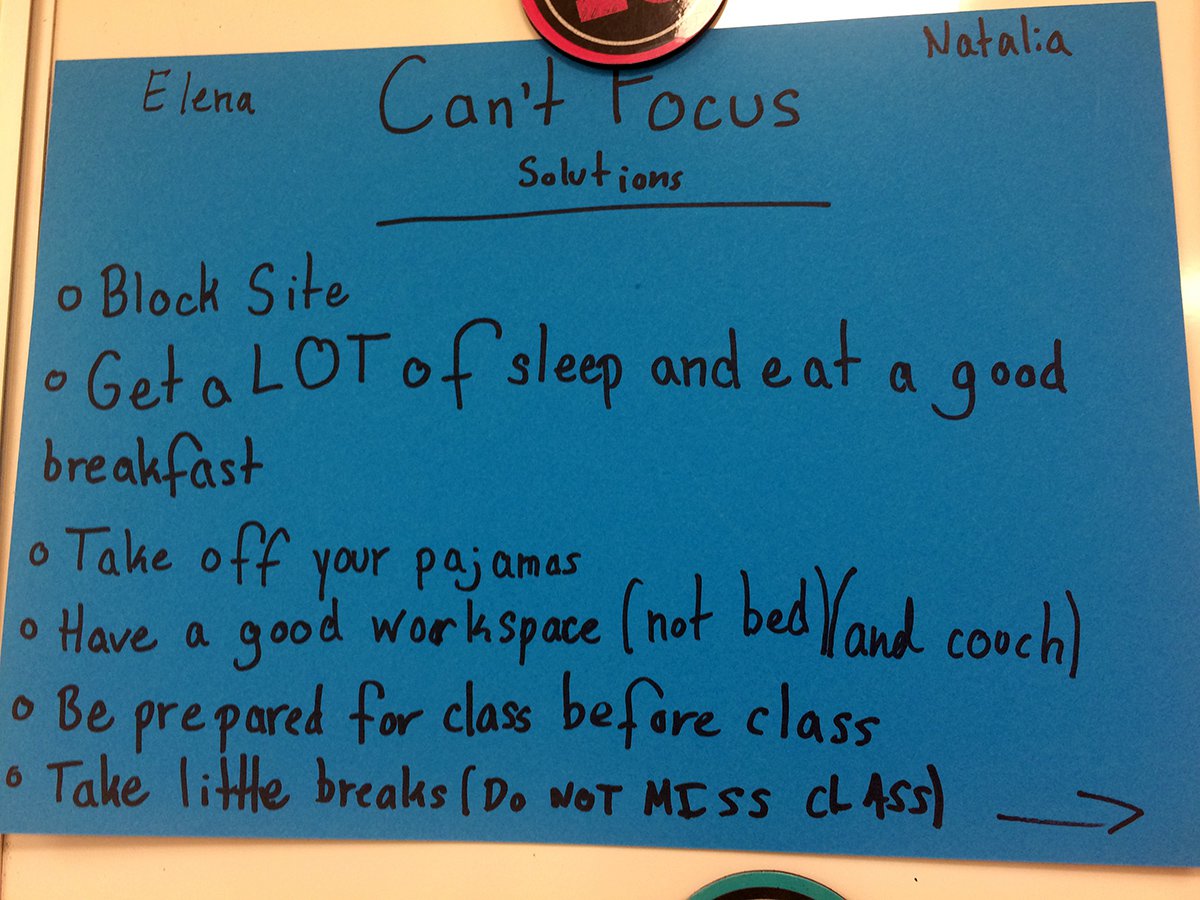 Elena
Can't Focus
Natalia
Solutions
Block Site
Get a LOT of sleep and eat a good
breakfast
Take off your pajamas
Have a good workspace (not bed)(and cooch)
Be prepared for class before class
Take little breaks (DO NOT MISS CLASS)